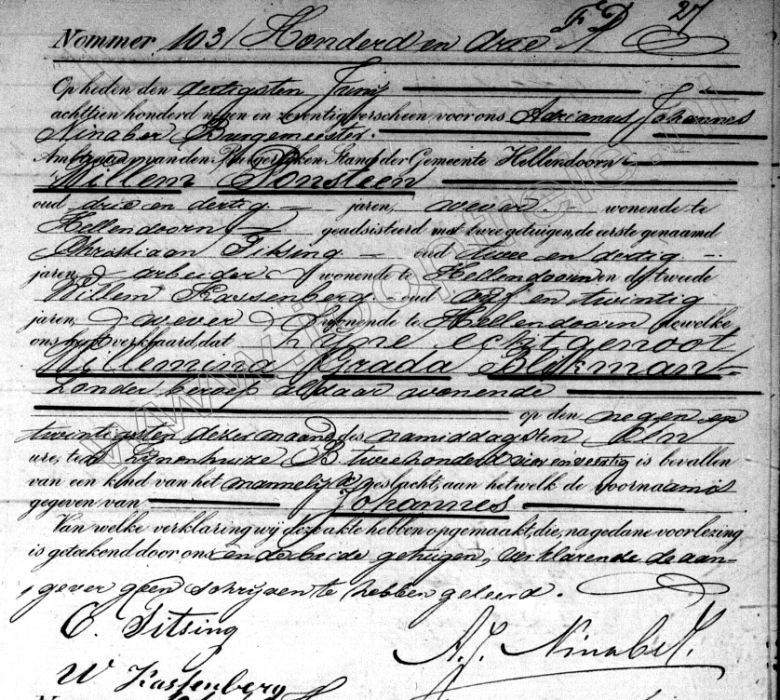 27
Nommer 103/ Honderd en drie
Op heden den dertigsten Junij
achttien honderd negen en zeventig verscheen voor ons Adrianus Johannes
Ninaber Burgemeester.
Ambtenaar van den Burgerlijken Stand der Gemeente Hellendoorn
Willem Ponsteen
oud drie en dertig jaren, wever wonende te
Hellendoorn geadsisteerd met twee getuigen, de eerste genaamd
Christiaan Titsing oud twee en dertig
jaren, arbeider wonende te Hellendoorn en de tweede
Willem Kassenberg oud vijf en twintig
jaren, wever wonende te Hellendoorn dewelke
ons heeft verklaard, dat zijne echtgenoot
Willemina Grada Blikman
zonder beroep aldaar wonende
op den negen en
twintigsten dezer maand des namiddags ten een
ure, ten zijnen huize B tweehonderd vier en veertig is bevallen
van een kind van het mannelijk geslacht, aan hetwelk de voornaam is
gegeven van Johannes
Van welke verklaring wij deze akte hebben opgemaakt, die, na gedane voorlezing
is geteekend door ons en de beide getuigen, verklarende de aan-
gever geen schrijven te hebben geleerd.
C. Titsing
A. J. Ninaber.
W Kassenberg